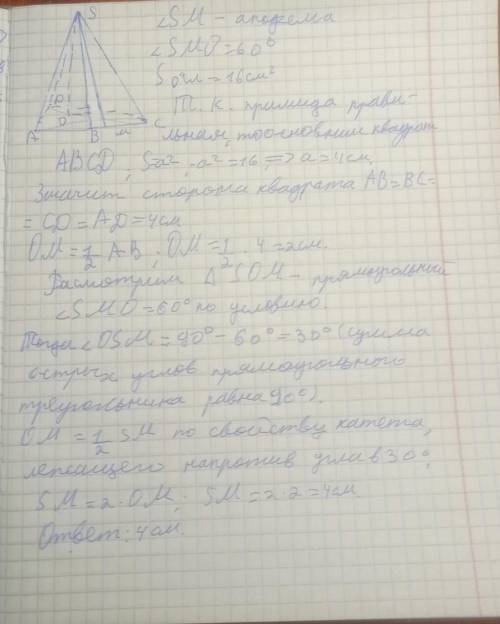 S
A
B
C
D
O
M
∠SM – апофема
∠SMO = 60°
Sосн = 16см²
Т. к. примида прави-
льная, то основании квадрат
ABCD; S=a², a²=16 => a=4см.
Значит сторона квадрата AB=BC=
=CD=AD=4см
OM=1/2 AB. OM=1/2 · 4=2см.
Расмотрим Δ SOM – прямоугольный
∠SMO=60° по условию.
Тогда ∠OSM=90°-60°=30° (сумма
острых углов прямоугольного
треугольника равна 90°).
OM=1/2 SM по свойству катета,
лежащего напротив угла в 30°,
SM=2·OM; SM=2·2=4см.
Ответ: 4см.